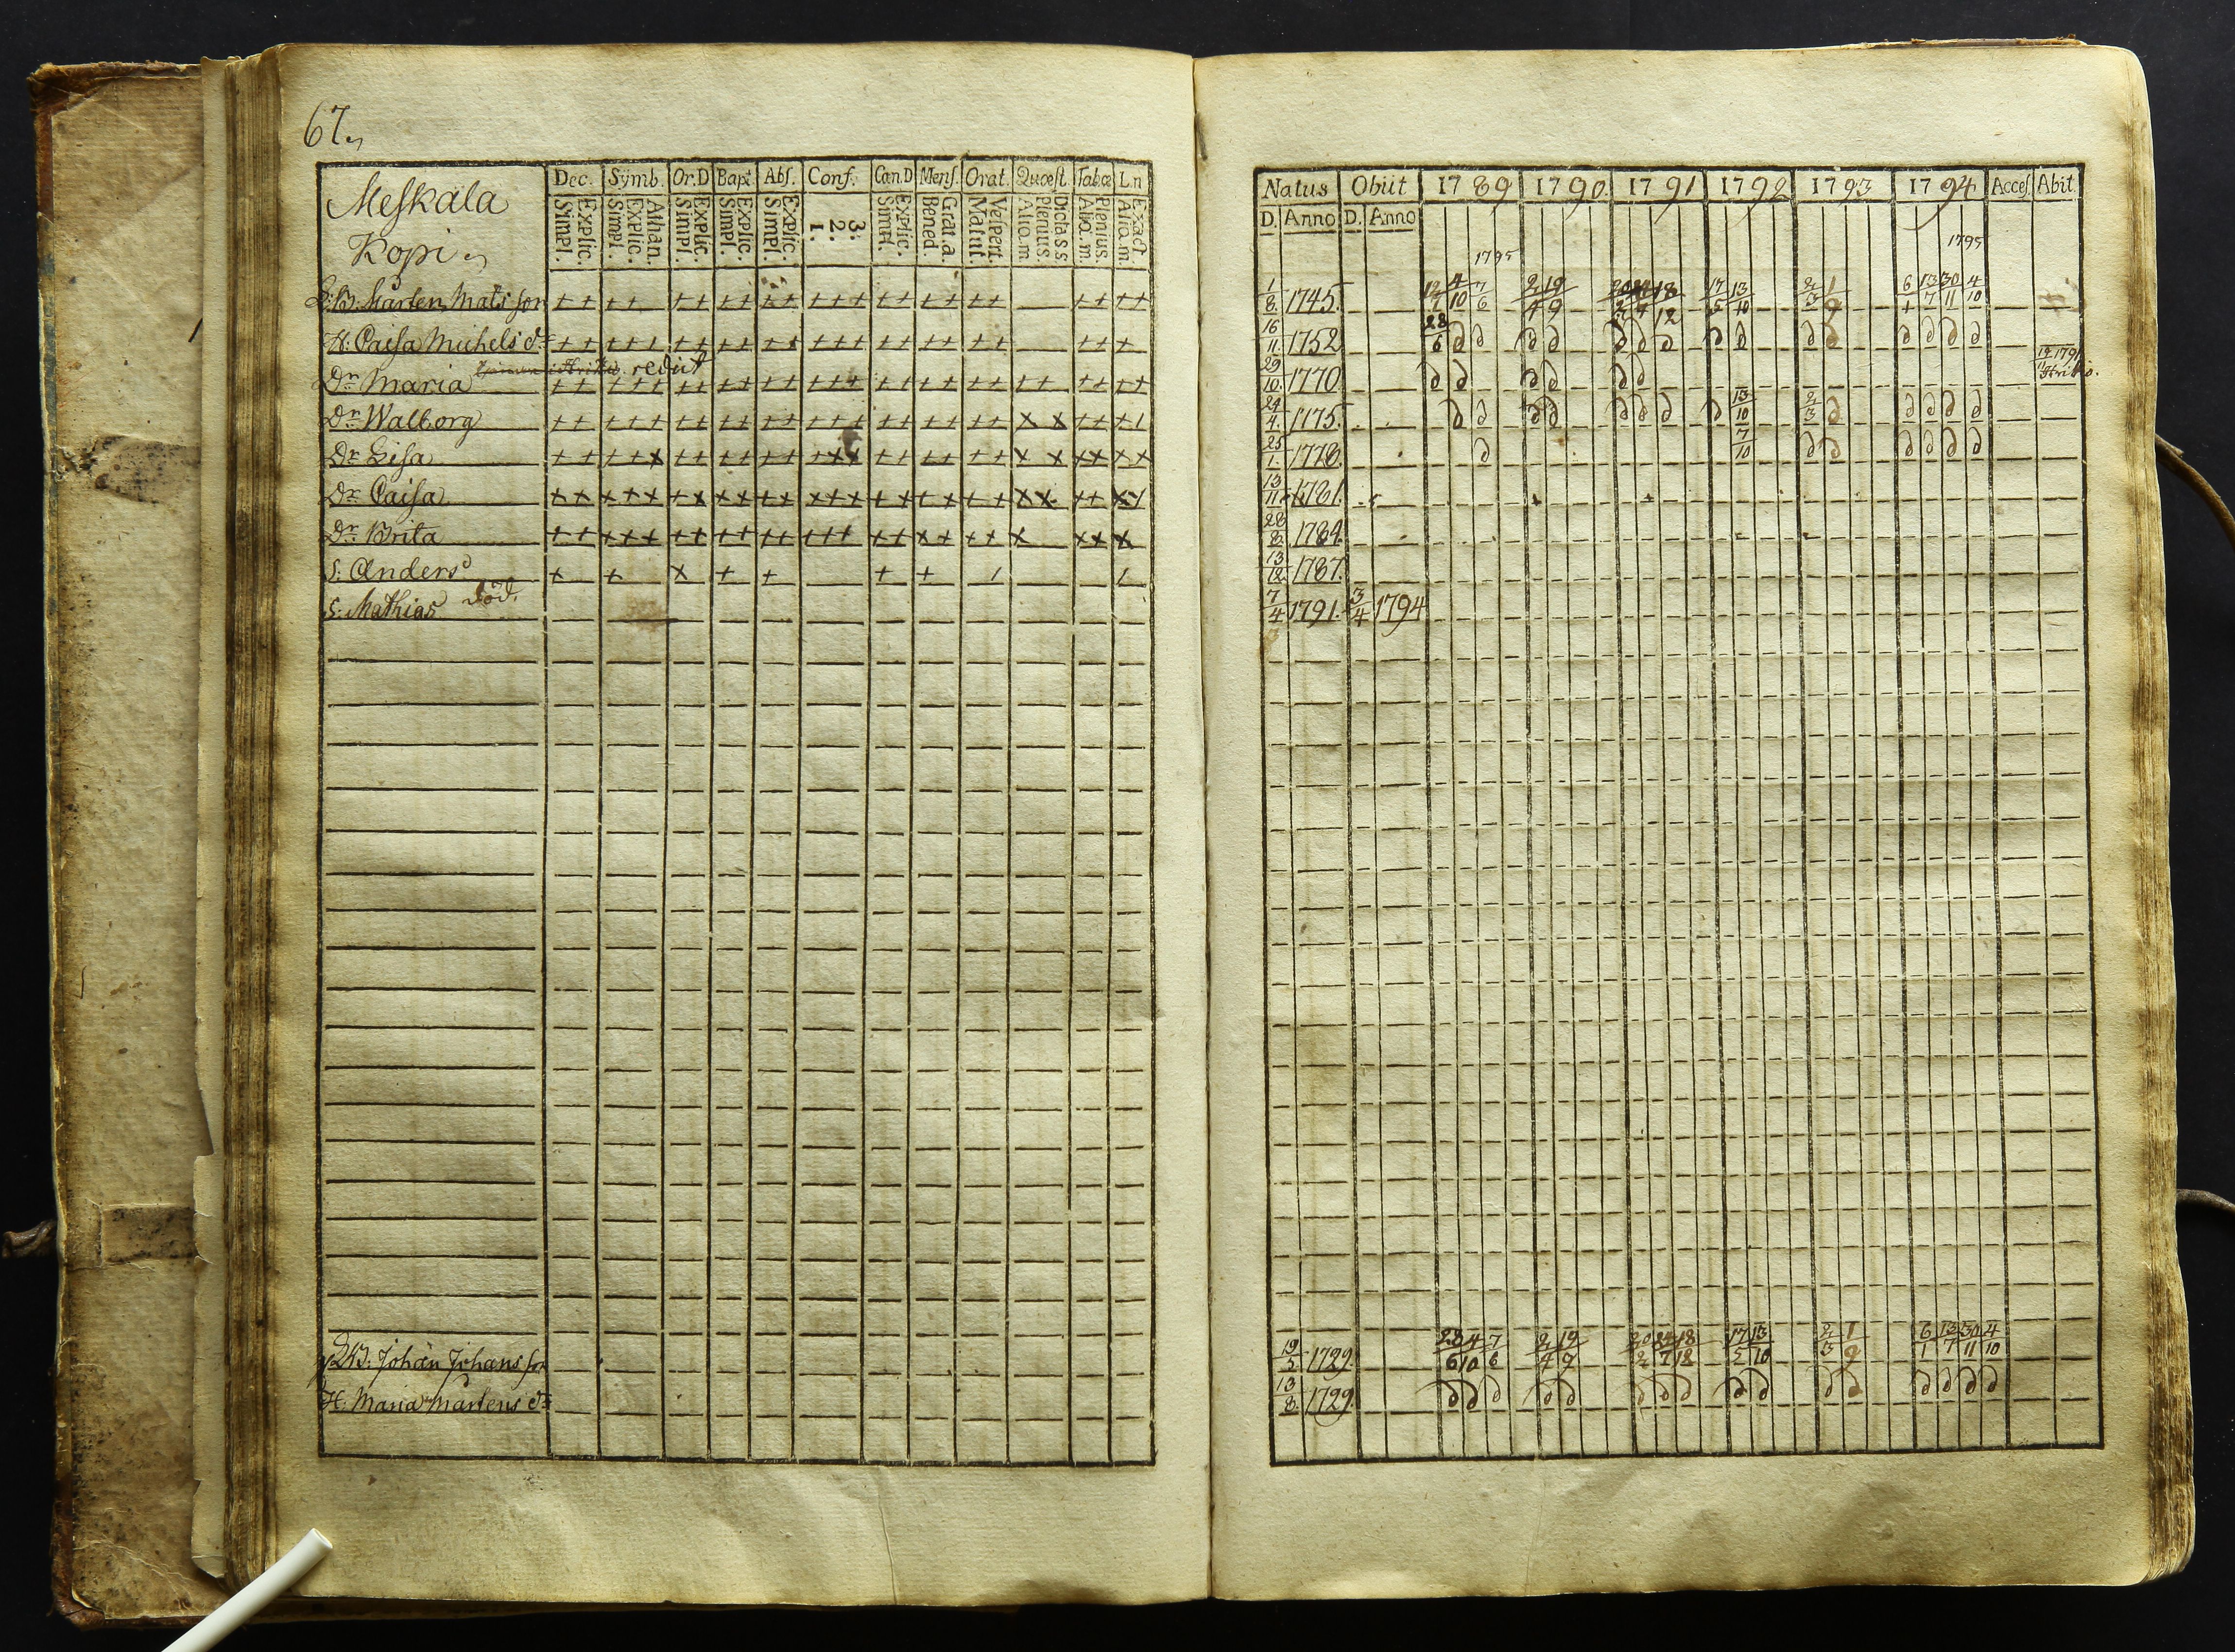 67.
Meskala
Kopi
Dec. Symb. Or.D Bapt. Abs. Conf. Cœn.D Mens. Orat. Quæst. Tabœ L.n
Simpl. Explic. Simpl. Explic. Athan. Simpl. Explic. Simpl. Explic. Simpl. Explic. 1. 2. 3. Simpl. Explic. Bened. Grat.a. Matut. Vespert. Aliq.m Plenius. Dicta s s Aliq.m. Plenius. Aliq.m. Exact
B. Mårten Mats son
H: Caisa Michels d:r
redut
Dr Maria
Dr Walborg
Dr Lisa
Dr Caisa
Dr Brita
S: Anders
S: Mathias död.
B: Johan Johans son
H. Maria Mårtens d:r
Natus Obiit 1789 1790 1791 1792 1793 1794 Acces. Abit.
D. Anno D. Anno
1795 1795
1/8. 1745. 12/7 4/10 7/6 2/4 19/9 18/12 17/5 13/10 2/3 1/9 6/1 13/7 30/11 4/10
16/11. 1752. 28/6 d d d d d d d d d d d d d d d
29/10. 1770. d d d d d d
24/4. 1775. d d d d d d d d 13/10 2/3 d d d d d
25/1. 1778. d 7/10 d d d d d d
13/11 1781.
28/8. 1784.
13/12 1787.
7/4 1791. 3/4 1794
19/5 1729. 28/6 4/10 7/6 2/4 19/9 20/2 24/7 18/12 17/5 13/10 2/3 1/9 6/1 13/7 30/11 4/10
13/8. 1729. d d d d d d d d d d d d d d d d